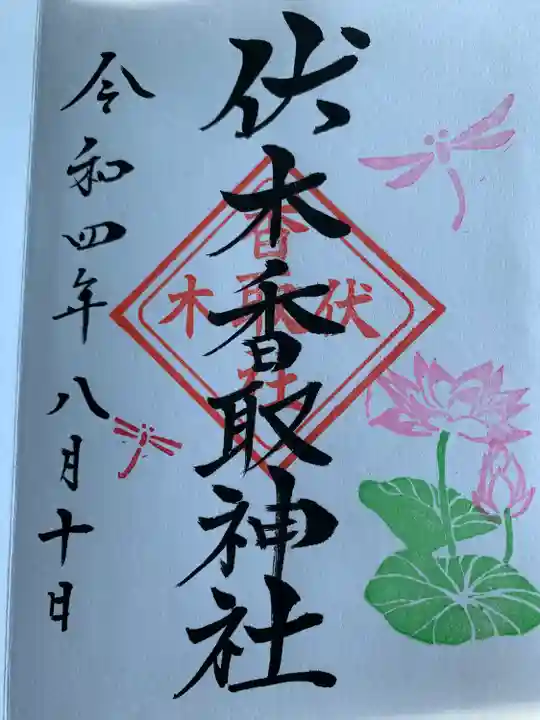 伏木香取神社
伏木
香取社
令和四年八月十日